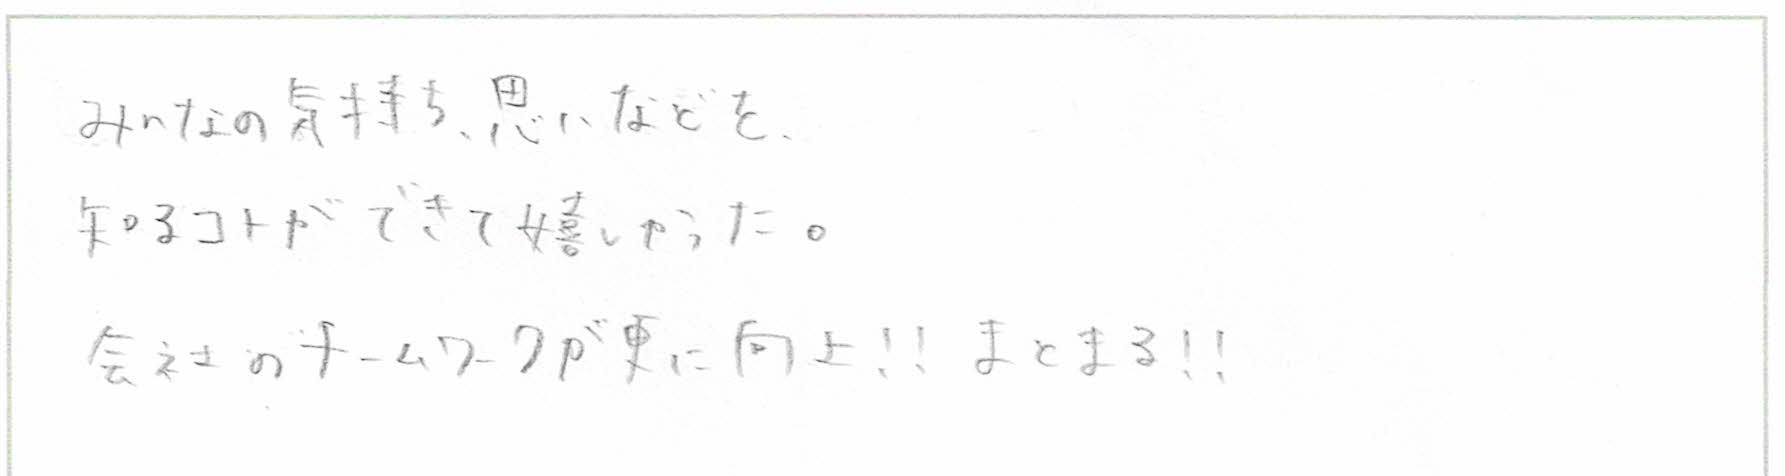 みんなの気持ち、思いなどを、
知るコトができて嬉しかった。
会社のチームワークが更に向上!! まとまる!!